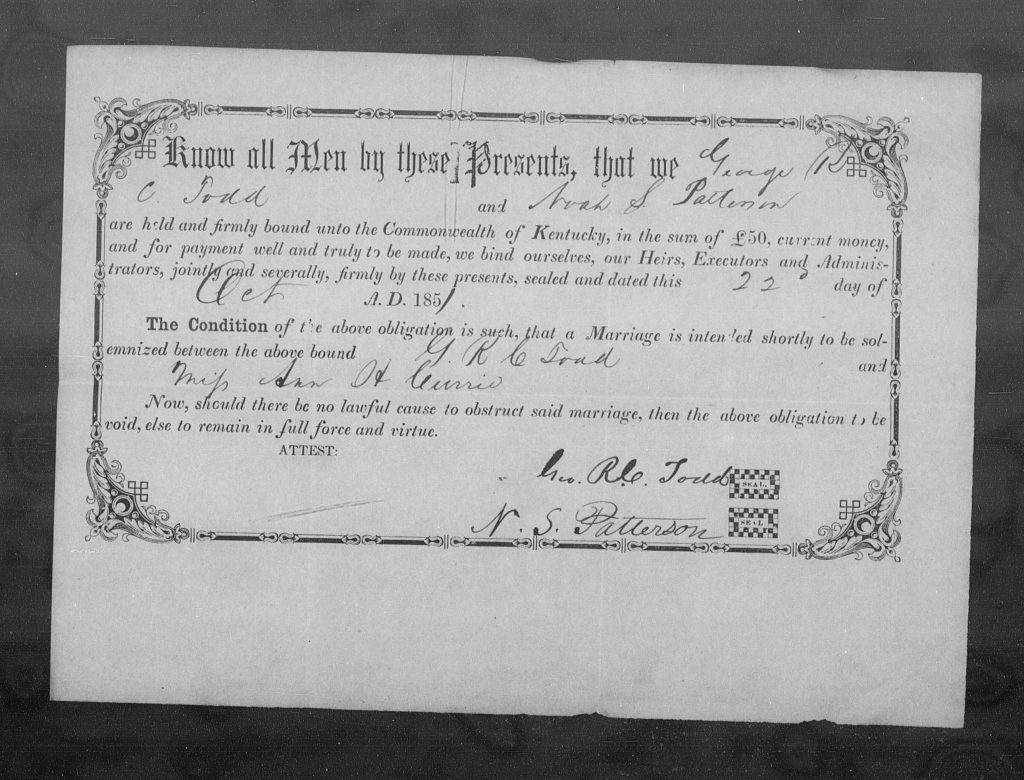 Know all Men by these Presents, that we George R
C. Todd and Noah S Patterson
are held and firmly bound unto the Commonwealth of Kentucky, in the sum of £50, current money,
and for payment well and truly to be made, we bind ourselves, our Heirs, Executors and Adminis-
trators, jointly and severally, firmly by these presents, sealed and dated this 22d day of
Oct A. D. 1851.
The Condition of the above obligation is such, that a Marriage is intended shortly to be sol-
emnized between the above bound G. R C Todd and
Miss Ann H Currie
Now, should there be no lawful cause to obstruct said marriage, then the above obligation to be
void, else to remain in full force and virtue.
ATTEST:
Geo. R. C. Todd SEAL.
N. S. Patterson SEAL